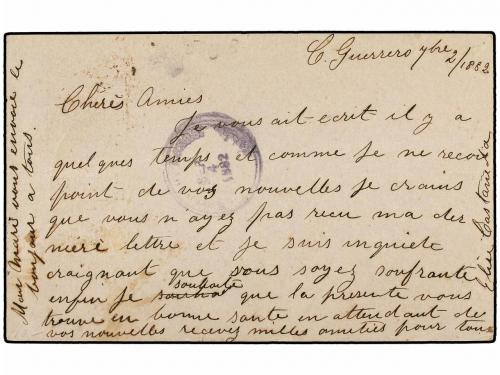 C. Guerrero 7bre 2/1882
Chères Amies
Je vous ait ecrit il y a
quelques temps et comme Je ne recois
point de vos nouvelles Je crains
que vous n ayez pas recu ma der
niere lettre et Je suis inquiete
craignant que vous soyez soufrante
enfin Je souhaite que la presente vous
trouve en bonne sante en attendant de
vos nouvelles recevez milles amities pour tous
Elise Castaneda
Mon Mari vous envoie le
bonjour a tous
1882